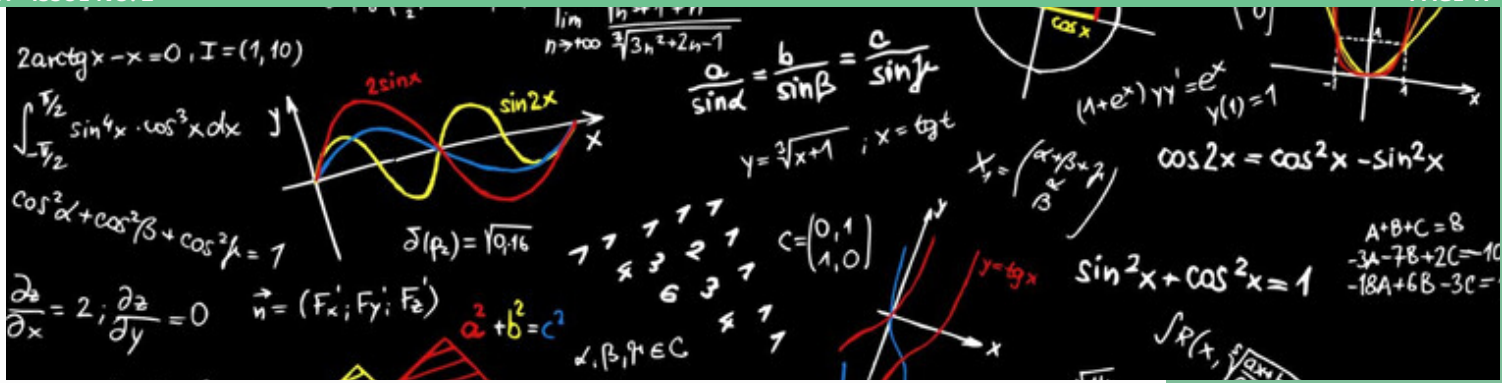 2arctgx-x=0, I=(1,10)
∫_{-π/2}^{π/2} sin⁴x·cos³xdx
cos²α+cos²β+cos²γ=1
∂z/∂x=2; ∂z/∂y=0
n⃗=(Fx'; Fy'; Fz')
y
2sinx
sin2x
x
δ(ρ₂)=√0,16
a²+b²=c²
lim n→+∞
∛3n²+2n-1
a/sinα = b/sinβ = c/sinγ
y=∛x+1; x=tgt
1 1 1 1
4 3 2 1
6 3 1
4 1
1
C=(0,1
1,0)
α,β,γ∈C
y
y=tgx
x
cosx
X₁=(α+β+γ
α
β)
(1+eˣ)yy'=eˣ
y(1)=1
1
-1
1
x
cos2x=cos²x-sin²x
sin²x+cos²x=1
A+B+C=8
-3A-7B+2C=-10
-18A+6B-3C=
∫R(x,